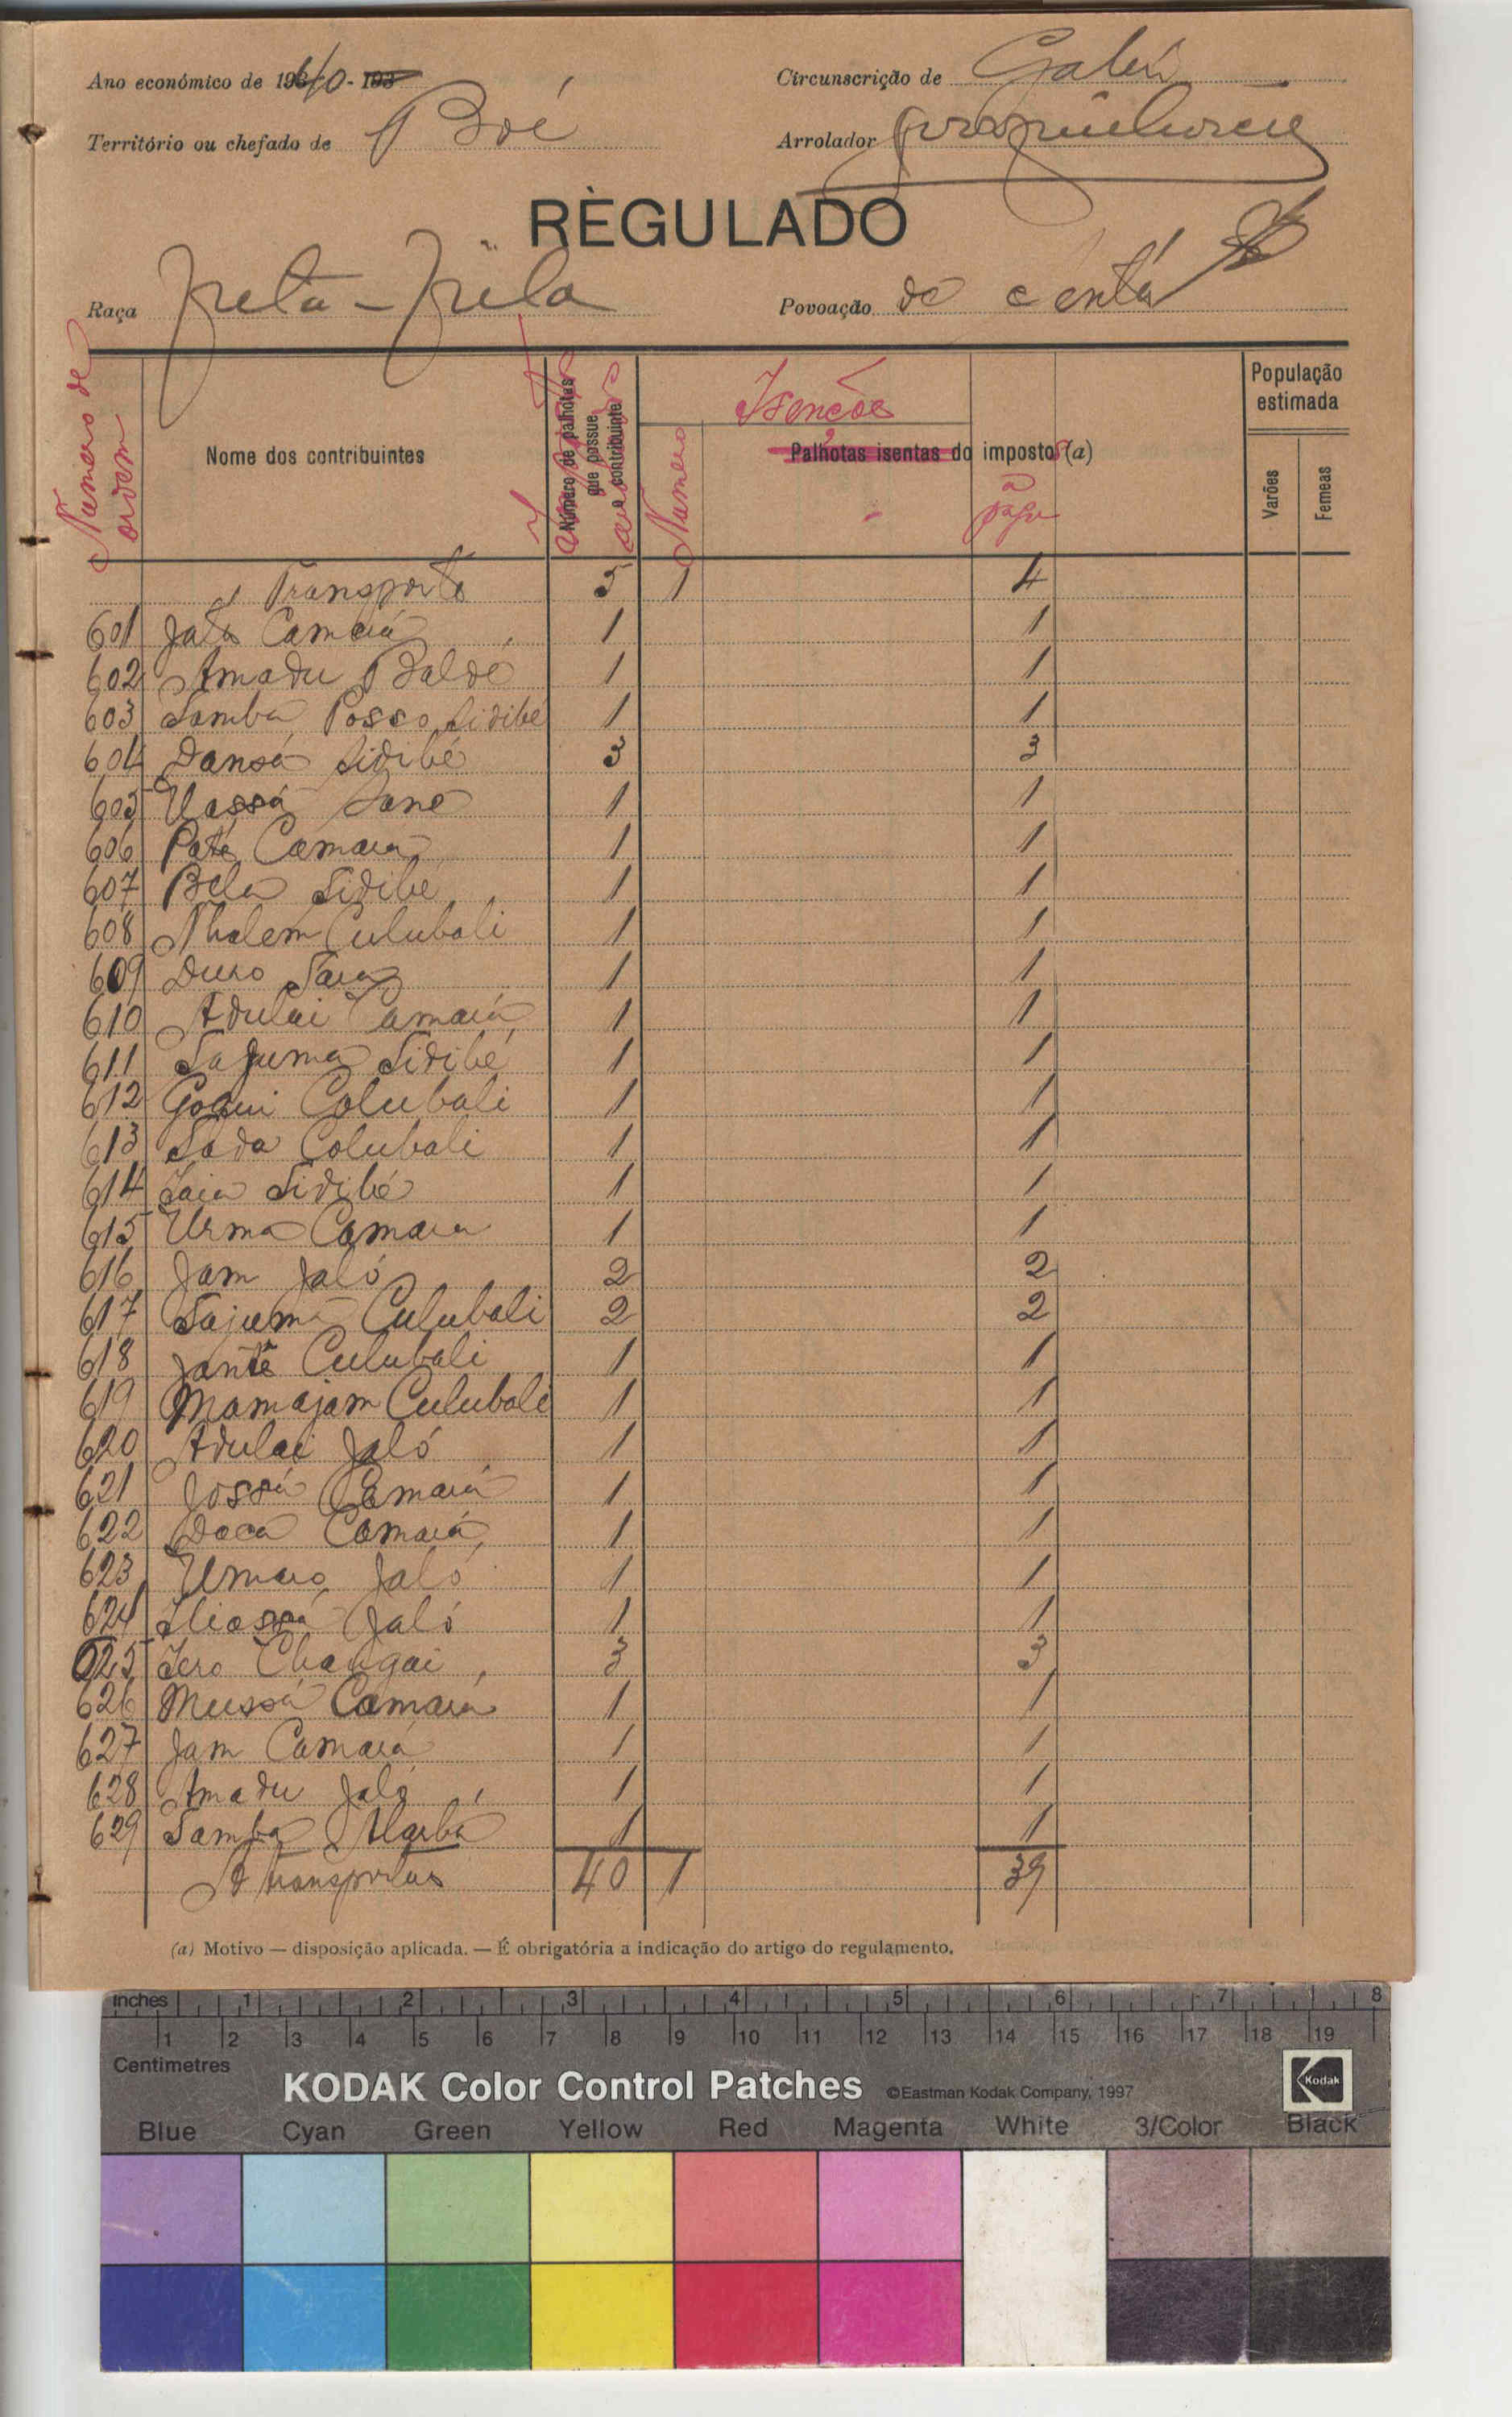 Ano económico de 1940 - 193
Circunscrição de Gabú
Território ou chefado de Boé
Arrolador
RÈGULADO
Raça Preta - Fula
Povoação de Centá
Numero de ordem
Nome dos contribuintes
Número de palhotas que possue o contribuinte
Numero
Isencões
Palhotas isentas do impostos (a)
a pagar
População estimada
Varões
Femeas
Transporte 5 1 4
601 Jata Camará 1 1
602 Amadu Baldé 1 1
603 Samba Posso Sidibé 1 1
604 Dansa Sidibé 3 3
605 Uassá Sane 1 1
606 Paté Camará 1 1
607 Bela Sidibé 1 1
608 Nhalem Culubali 1 1
609 Duro 1 1
610 Adulai Camará 1 1
611 Sajuma Sidibé 1 1
612 Colubali 1 1
613 Sada Colubali 1 1
614 Iaia Sidibé 1 1
615 Camara 1 1
616 Jam Jaló 2 2
617 Sajuma Culubali 2 2
618 Janté Culubali 1 1
619 Mamajam Culubali 1 1
620 Adulai Jaló 1 1
621 Jossá Camará 1 1
622 Doca Camará 1 1
623 Umaro Jaló 1 1
624 Iliassá Jaló 1 1
625 Iero Changai 3 3
626 Mussá Camará 1 1
627 Jam Camará 1 1
628 Amadu Jaló 1 1
629 Samba 1 1
A transportar 40 1 39
(a) Motivo — disposição aplicada. — É obrigatória a indicação do artigo do regulamento.
inches 1 2 3 4 5 6 7 8
1 2 3 4 5 6 7 8 9 10 11 12 13 14 15 16 17 18 19
Centimetres
KODAK Color Control Patches ©Eastman Kodak Company, 1997 Kodak
Blue Cyan Green Yellow Red Magenta White 3/Color Black